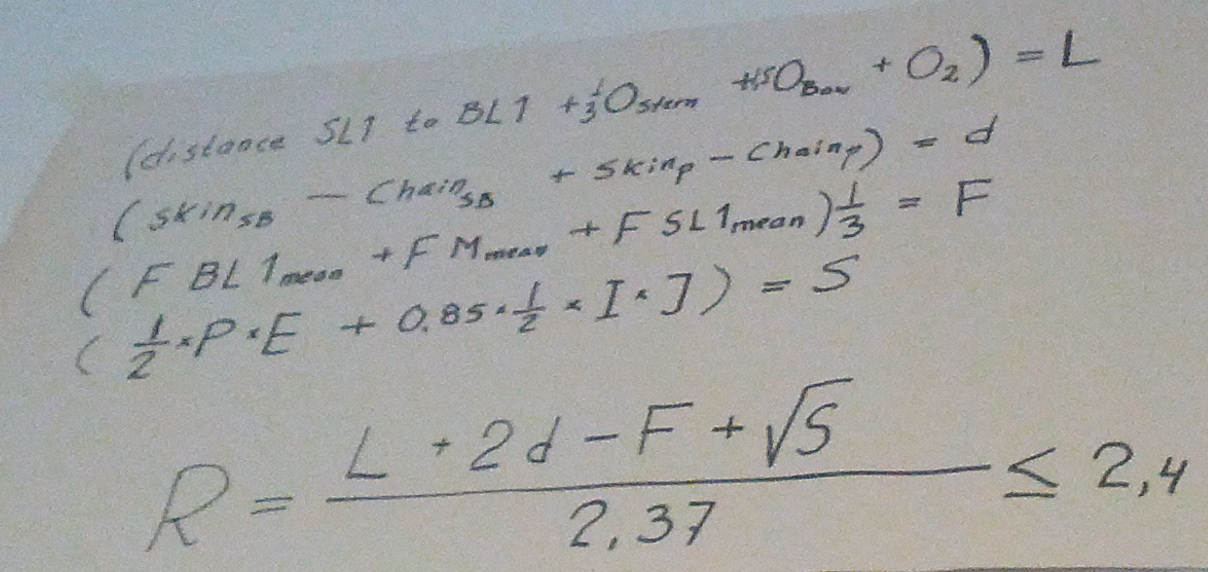 (distance SL1 to BL1 + 1/3 O Stern + 1,5 O Bow + O2) = L
(skin SB - Chain SB + Skin P - Chain P) = d
(F BL 1 mean + F M mean + F SL 1 mean) 1/3 = F
(1/2 × P × E + 0.85 × 1/2 × I × J) = S
R = (L + 2d - F + √S) / 2,37 ≤ 2,4